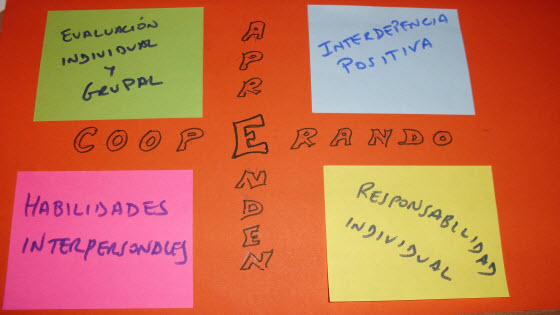 EVALUACIÓN
INDIVIDUAL
Y
GRUPAL
APRENDEN
INTERDEPENCIA
POSITIVA
COOPERANDO
HABILIDADES
INTERPERSONALES
RESPONSABILIDAD
INDIVIDUAL